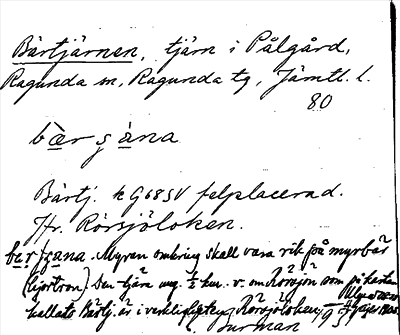 Bärtjärnen, tjärn i Pålgård,
Ragunda sn, Ragunda tg, Jämtl. l.
80
bær ʃ äna
Bärtj. k G68SV felplacerad.
Jfr. Rörsjöloken.
bærʃæna. Myren omkring skall vara rik på myrbär
(hjortron) Den tjärn ung. ½ km. v. om Rörsjön som på kartan
kallats Bärtj. är i verkligheten Rörsjöloken.